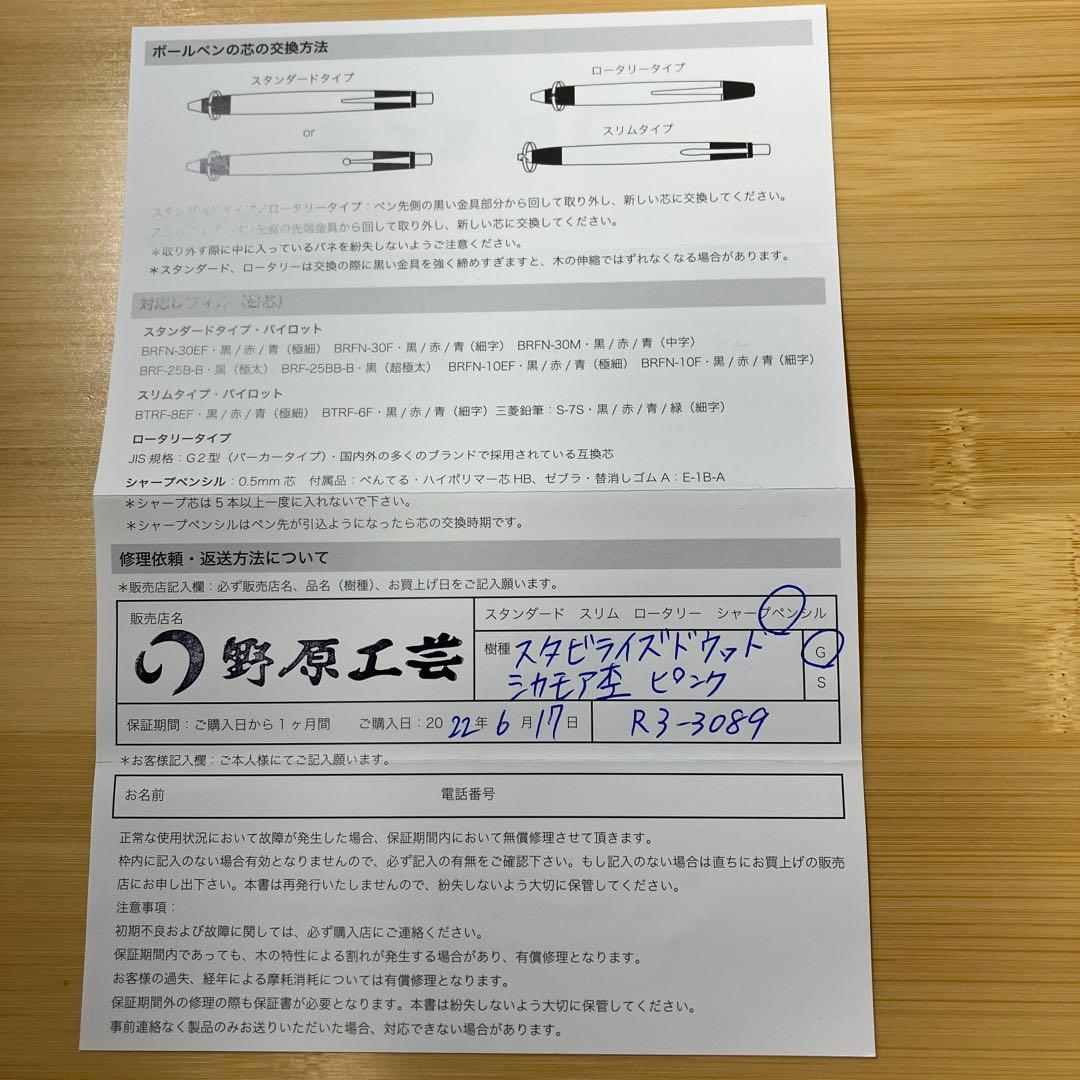 ボールペンの芯の交換方法
スタンダードタイプ
ロータリータイプ
or
スリムタイプ
スタンダードタイプ/ロータリータイプ：ペン先側の黒い金具部分から回して取り外し、新しい芯に交換してください。
スリムタイプ：ペン先側の先端金具から回して取り外し、新しい芯に交換してください。
＊取り外す際に中に入っているバネを紛失しないようご注意ください。
＊スタンダード、ロータリーは交換の際に黒い金具を強く締めすぎますと、木の伸縮ではずれなくなる場合があります。
対応レフィル（替芯）
スタンダードタイプ・パイロット
BRFN-30EF・黒/赤/青（極細） BRFN-30F・黒/赤/青（細字） BRFN-30M・黒/赤/青（中字）
BRF-25B-B・黒（極太） BRF-25BB-B・黒（超極太） BRFN-10EF・黒/赤/青（極細） BRFN-10F・黒/赤/青（細字）
スリムタイプ・パイロット
BTRF-8EF・黒/赤/青（極細） BTRF-6F・黒/赤/青（細字）三菱鉛筆：S-7S・黒/赤/青/緑（細字）
ロータリータイプ
JIS規格：G2型（パーカータイプ）・国内外の多くのブランドで採用されている互換芯
シャープペンシル：0.5mm芯 付属品：ぺんてる・ハイポリマー芯HB、ゼブラ・替消しゴムA：E-1B-A
＊シャープ芯は5本以上一度に入れないで下さい。
＊シャープペンシルはペン先が引込ようになったら芯の交換時期です。
修理依頼・返送方法について
＊販売店記入欄：必ず販売店名、品名（樹種）、お買上げ日をご記入願います。
販売店名
野原工芸
スタンダード スリム ロータリー シャープペンシル
樹種 スタビライズドウッド
シカモア杢 ピンク
G
S
保証期間：ご購入日から1ヶ月間 ご購入日：2022年6月17日
R3-3089
＊お客様記入欄：ご本人様にてご記入願います。
お名前 電話番号
正常な使用状況において故障が発生した場合、保証期間内において無償修理させて頂きます。
枠内に記入のない場合有効となりませんので、必ず記入の有無をご確認下さい。もし記入のない場合は直ちにお買上げの販売
店にお申し出下さい。本書は再発行いたしませんので、紛失しないよう大切に保管してください。
注意事項：
初期不良および故障に関しては、必ず購入店にご連絡ください。
保証期間内であっても、木の特性による割れが発生する場合があり、有償修理となります。
お客様の過失、経年による摩耗消耗については有償修理となります。
保証期間外の修理の際も保証書が必要となります。本書は紛失しないよう大切に保管してください。
事前連絡なく製品のみお送りいただいた場合、対応できない場合があります。